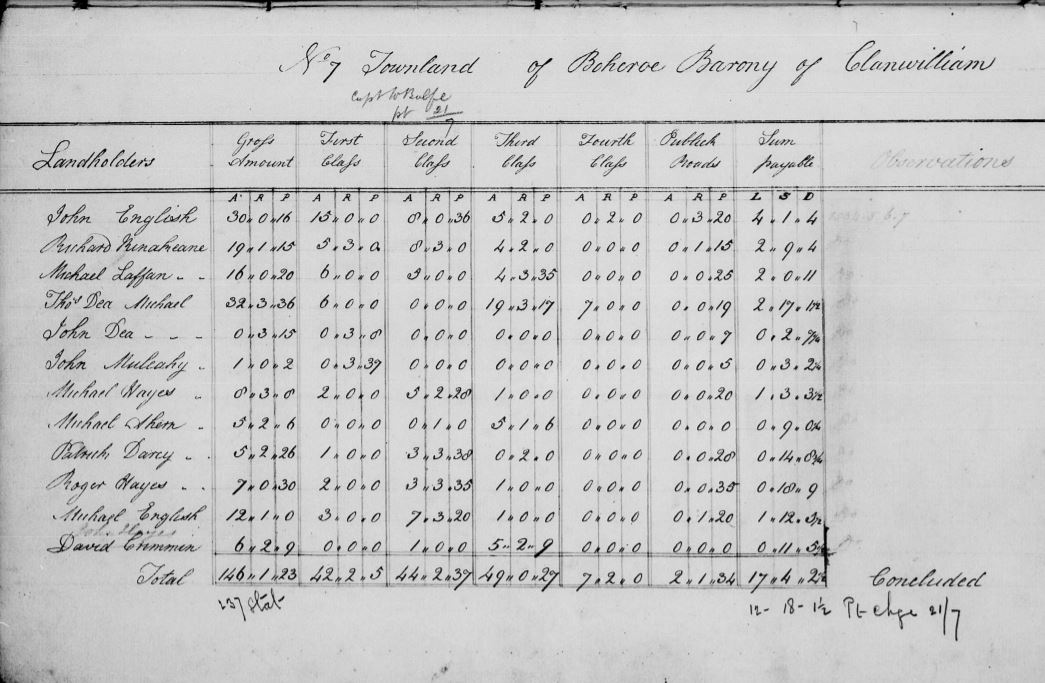 No 7 Townland of Boheroe Barony of Clanwilliam
Capt W Bulfe
pt 21/7
Landholders Gross Amount First Class Second Class Third Class Fourth Class Publick Roads Sum payable Observations
A R P A R P A R P A R P A R P A R P L S D
John English 30 " 0 " 16 15 " 0 " 0 8 " 0 " 36 5 " 2 " 0 0 " 2 " 0 0 " 3 " 20 4 " 1 " 4
Richard 19 " 1 " 15 5 " 3 " 0 8 " 3 " 0 4 " 2 " 0 0 " 0 " 0 0 " 1 " 15 2 " 9 " 4
Michael Laffan 16 " 0 " 20 6 " 0 " 0 5 " 0 " 0 4 " 3 " 35 0 " 0 " 0 0 " 0 " 25 2 " 0 " 11
Thos Dea Michael 32 " 3 " 36 6 " 0 " 0 0 " 0 " 0 19 " 3 " 17 7 " 0 " 0 0 " 0 " 19 2 " 17 " 1½
John Dea 0 " 3 " 15 0 " 3 " 8 0 " 0 " 0 0 " 0 " 0 0 " 0 " 0 0 " 0 " 7 0 " 2 "
John Mulcahy 1 " 0 " 2 0 " 3 " 37 0 " 0 " 0 0 " 0 " 0 0 " 0 " 0 0 " 0 " 5 0 " 3 "
Michael Hayes 8 " 3 " 8 2 " 0 " 0 5 " 2 " 28 1 " 0 " 0 0 " 0 " 0 0 " 0 " 20 1 " 3 " 3½
Michael Ahern 5 " 2 " 6 0 " 0 " 0 0 " 1 " 0 5 " 1 " 6 0 " 0 " 0 0 " 0 " 0 0 " 9 "
Patrick Darcy 5 " 2 " 26 1 " 0 " 0 3 " 3 " 38 0 " 2 " 0 0 " 0 " 0 0 " 0 " 28 0 " 14 "
Roger Hayes 7 " 0 " 30 2 " 0 " 0 3 " 3 " 35 1 " 0 " 0 0 " 0 " 0 0 " 0 " 35 0 " 18 " 9
Michael English 12 " 1 " 0 3 " 0 " 0 7 " 3 " 20 1 " 0 " 0 0 " 0 " 0 0 " 1 " 20 1 " 12 " 3½
John Hayes
David Crimmin 6 " 2 " 9 0 " 0 " 0 1 " 0 " 0 5 " 2 " 9 0 " 0 " 0 0 " 0 " 0 0 " 11 "
Total 146 " 1 " 23 42 " 2 " 5 44 " 2 " 37 49 " 0 " 27 7 " 2 " 0 2 " 1 " 34 17 " 4 " Concluded
237 Stat 12 - 18 - 1½ Pt chge 21/7